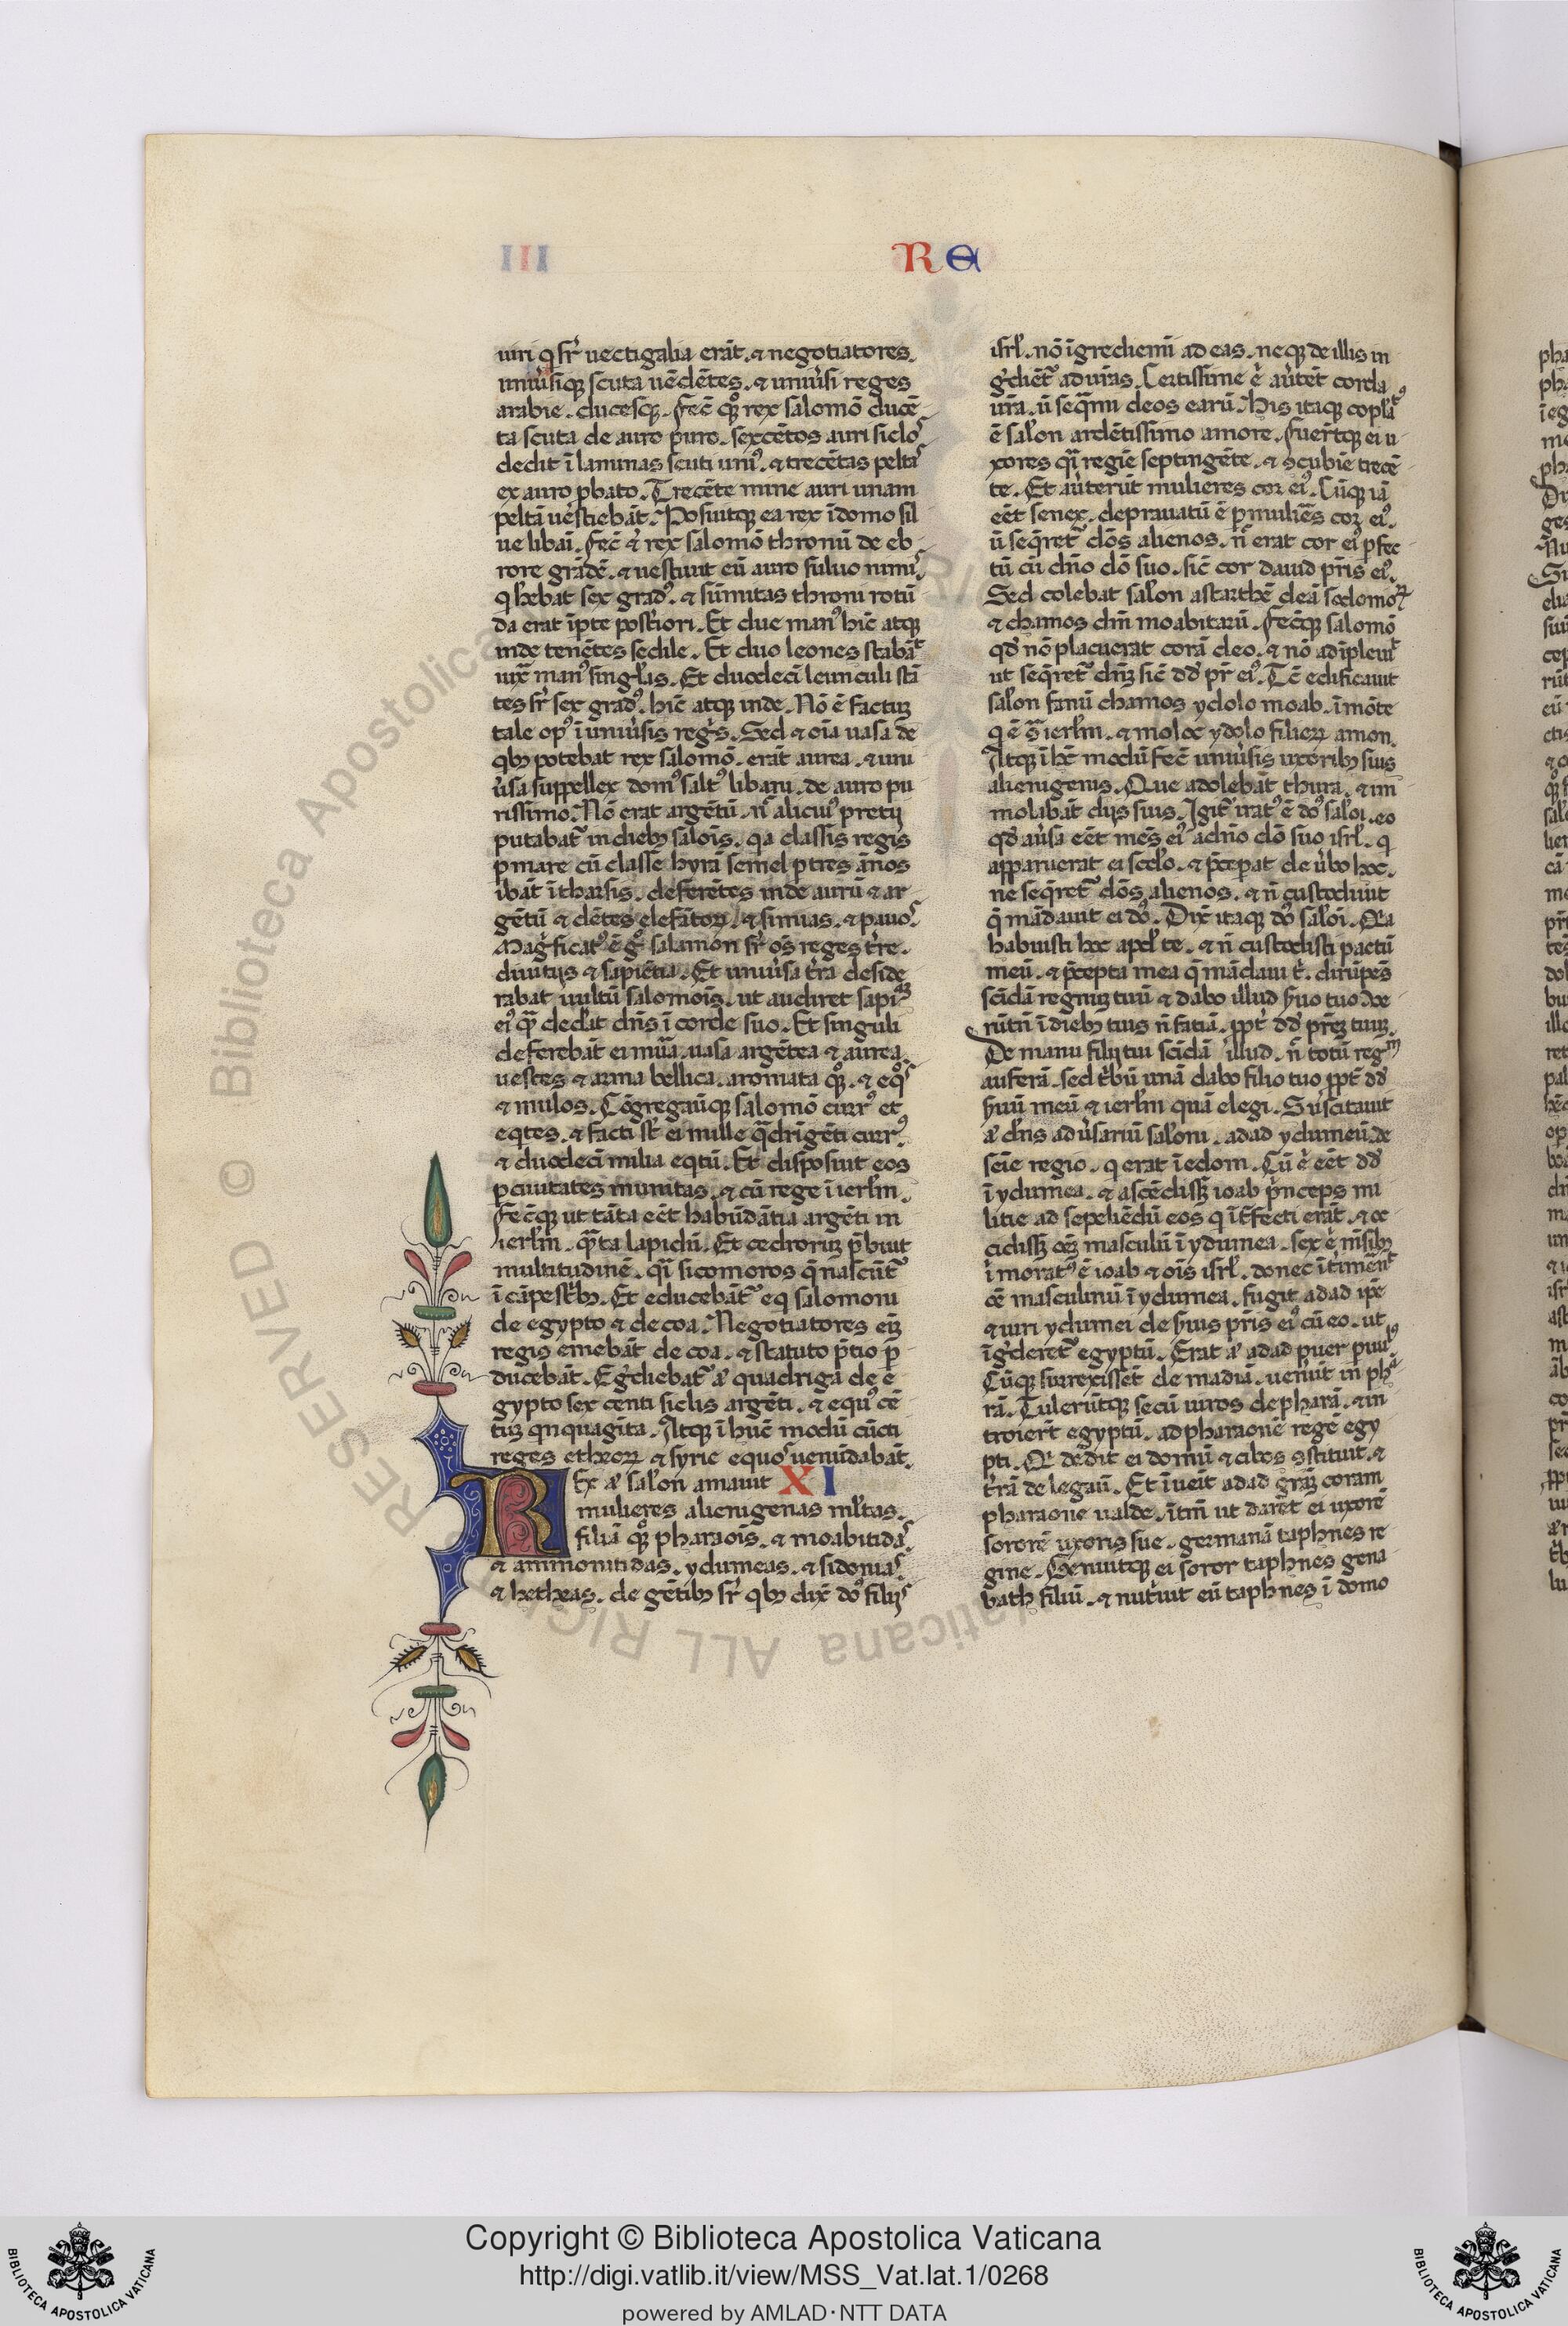 III
RE
uiri q sr̄ uectigalia erāt. ⁊ negotiatores.
uniu̇siq̨ scuta uēdētes. ⁊ uniu̇si reges
arabie. ducesq̨. fec̄ qͦꝫ rex salomō ducē
ta scuta de auro puro. sexcētos auri siclos
dedit ī laminas scuti uniꝰ. ⁊ trecētas peltas
ex auro ꝓbato. Trecēte mine auri unam
peltā uestiebāt. Posuitq̨ ea rex ī domo sil
ue libāi. fec̄ ⁊ rex salomō thronū de eb
rore grādē. ⁊ uestiuit eū auro fuluo nimis
q hēbat sex gradꝰ. ⁊ sūmitas throni rotū
da erat ī pte postiori. Et due manꝰ hīc atq̨
inde tenētes sedile. Et duo leones stabāt
iux̄ manꝰ singl̄as. Et duodecī leunculi stā
tes sr̄ sex gradꝰ. hīc atq̨ inde. Nō ē factuꝫ
tale opꝰ ī uniu̇sis regis. Sed ⁊ oīa uasa de
qbꝫ potebat rex salomō. erāt aurea. ⁊ uni
u̇sa suppellex domꝰ saltꝰ libani. de auro pu
rissimo. Nō erat argētū. n̄ alicuiꝰ pretij
putabat᷑ in diebꝫ salōis. qa classis regis
p mare cū classē hyrā semel p tres ānos
ibāt ī tharsis. deferētes inde aurū ⁊ ar
gētū ⁊ dētes elefātoꝝ. ⁊ simias. ⁊ pauos
Magificatꝰ ē gͦ salamon sr̄ os̄ reges tr̄re.
diuitijs ⁊ sapiētia. Et uniu̇sa tr̄ra deside
rabat uultū salomōis. ut audiret sapiaꝫ
eiꝰ qͣ ded̄at dn̄s ī corde suo. Et singuli
deferebāt ei mūa. uasa argētea ⁊ aurea.
uestes ⁊ arma bellica. aromata qͦꝫ. ⁊ eqos
⁊ mulos. Cōgregauitq̨ salomō currꝰ et
eqtes. ⁊ facti st̄ ei mille qͣdrīgēti currꝰ
⁊ duodecī milia eqtū. Et disposuit eos
p ciuitates munitas. ⁊ cū rege ī ierlm̄.
fecitq̨ ut tāta eēt habūdātia argēti in
ierlm̄. qͣta lapidū. Et cedroruꝫ p̄buit
multitudinē. qͣi sicomoros q̄ nascūt᷑
ī cāpestribꝫ. Et educebāt᷑ eq salomoni
de egypto ⁊ de coa. Negotiatores eīꝫ
regis emebāt de coa. ⁊ statuto p̄tio p
ducebāt. Eg̊diebat᷑ aͧ quadriga de e
gypto sex centi siclis argēti. ⁊ equꝰ cē
tuꝫ qnquagita. Atq̨ ī hūc modū cūcti
reges etheoꝝ ⁊ syrie equos uenūdabāt.
REx aͧ sal̄on amauit XI
mulieres alienigenas ml̄tas.
filiā qͦꝫ pharaōis. ⁊ moabitidas
⁊ ammonitidas. ydumeas. ⁊ sidonias
⁊ hetheas. de gētibꝫ sr̄ qbꝫ dix̄ dōs filijs
isrl̄. nō īgrediemī ad eas. neq̨ de illis in
g̊diēt᷑ ad uīas. Certissime ē au̇tēt corda
uīa. ū seqͣmi deos earū. His itaq̨ copl̄atꝰ
ē sal̄on ardētissimo amore. fuerūtq̨ ei u
xores qͣi regīe septingēte. ⁊ ↄcubīe trecē
te. Et au̇terūt mulieres cor eiꝰ. Cūq̨ iā
eēt senex. deprauatū ē p mulies̄ cor eiꝰ.
ū seq̄ret᷑ dōs alienos. n̄ erat cor eiꝰ pfec
tū cū dn̄o dō suo. sic̄ cor dauid pr̄is eiꝰ.
Sed colebat sal̄on astarthē deā sodomoꝝ
⁊ chamos dm̄ moabitarū. fecitq̨ salomō
qd̄ nō placuerat corā deo. ⁊ nō adipleuit
ut seq̄ret᷑ dn̄ꝫ sic̄ dd̄ pr̄ eiꝰ. Tc̄ edificauit
sal̄on fanū chamos ydolo moab. ī mōte
q ē ɔ̄ ierlm̄. ⁊ moloc ydolo filioꝝ amon.
Atq̨ ī hc̄ modū fec̄ uniu̇sis uxoribꝫ suis
alienigenis. Que adolebāt thura. ⁊ im
molabāt dijs suis. Igit᷑ iratꝰ ē dōs sal̄oi. eo
qd̄ au̇sa eēt mēs eiꝰ a dn̄o dō suo isrl̄. q
apparuerat ei scdō. ⁊ p̄cepat de u̇bo hoc.
ne seq̄ret᷑ dōs alienos. ⁊ n̄ custodiuit
q̄ mādauit ei dōs. Dix̄ itaq̨ dōs sal̄oi. Qa
habuisti hoc apd̄ te. ⁊ n̄ custodisti pactū
meū. ⁊ p̄cepta mea q̄ mādaui t̄. dirūpēs
scīdā regnuꝫ tuū ⁊ dabo illud s̄uo tuo. Ve
rūtn̄ ī diebꝫ tuis n̄ faciā. ppt̄ dd̄ pr̄eꝫ tuuꝫ.
De manu filij tui scīdā illud. n̄ totū regm̄
auferā. sed tr̄bū unā dabo filio tuo ppt̄ dd̄
s̄uū meū ⁊ ierlm̄ quā elegi. Suscitauit
aͧ dn̄s adu̇sariū sal̄oni. adad ydumeū. de
seīe regio. q erat ī edom. Cū ē eēt dd̄
ī ydumea. ⁊ ascēdissꝫ ioab p̄nceps mi
litie ad sepeliēdū eos q ītfecti erāt. ⁊ oc
cidissꝫ oēꝫ masculū ī ydumea. sex ē mēsibꝫ
ī moratꝰ ē ioab ⁊ ois̄ isrl̄. donec ītimeret
oē masculinū ī ydumea. fugit adad ipē
⁊ uiri ydumei de s̄uis pr̄is eiꝰ cū eo. ut
īg̊deret᷑ egyptū. Erat aͧ adad puer puulꝰ
Cūq̨ surrexissēt de madiā. uenerūt in pha
rā. Tulerūtq̨ secū uiros de pharā. ⁊ in
troiert̄ egyptū. ad pharaonē regē egy
pti. Q dedit ei domū ⁊ cibos ↄstituit. ⁊
tr̄rā delegauit. Et īueit adad gr̄aꝫ coram
pharaone ualde. ītm̄ ut daret ei uxorē
sororē uxoris sue. germanā taphnes re
gine. Genuitq̨ ei soror taphnes gena
bath filiū. ⁊ nutriuit eū taphnes ī domo
Copyright © Biblioteca Apostolica Vaticana
http://digi.vatlib.it/view/MSS_Vat.lat.1/0268
powered by AMLAD·NTT DATA